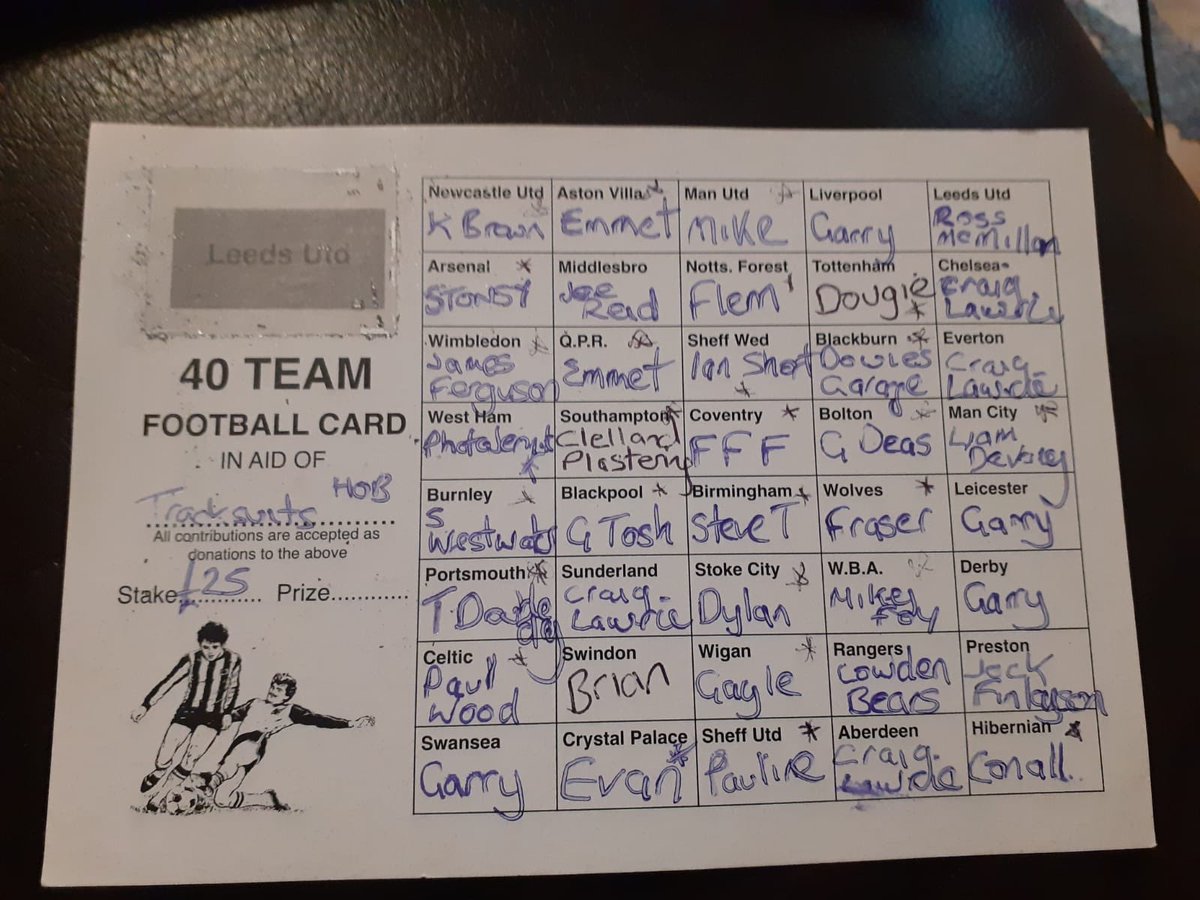 Leeds Utd
40 TEAM
FOOTBALL CARD
IN AID OF
HOB
Tracksuits
All contributions are accepted as
donations to the above
Stake £25 Prize
Newcastle Utd
K Brown
Aston Villa
Emmet
Man Utd
Mike
Liverpool
Garry
Leeds Utd
Ross
McMillan
Arsenal
Middlesbro
Joe
Read
Notts. Forest
Flem
Tottenham
Dougie
Chelsea
Craig
Lawrie
Wimbledon
James
Ferguson
Q.P.R.
Emmet
Sheff Wed
Ian Short
Blackburn
Dowies
Garage
Everton
Craig
Lawrie
West Ham
Southampton
Clelland
Plastering
Coventry
F F F
Bolton
G Deas
Man City
Liam
Burnley
S
Blackpool
G Tosh
Birmingham
Steve T
Wolves
Fraser
Leicester
Garry
Portsmouth
T
Sunderland
Craig
Lawrie
Stoke City
Dylan
W.B.A.
Mikey
Foy
Derby
Garry
Celtic
Paul
Wood
Swindon
Brian
Wigan
Gayle
Rangers
Cowden
Bears
Preston
Jack
Finlayson
Swansea
Garry
Crystal Palace
Evan
Sheff Utd
Pauline
Aberdeen
Craig
Lawrie
Hibernian
Conall